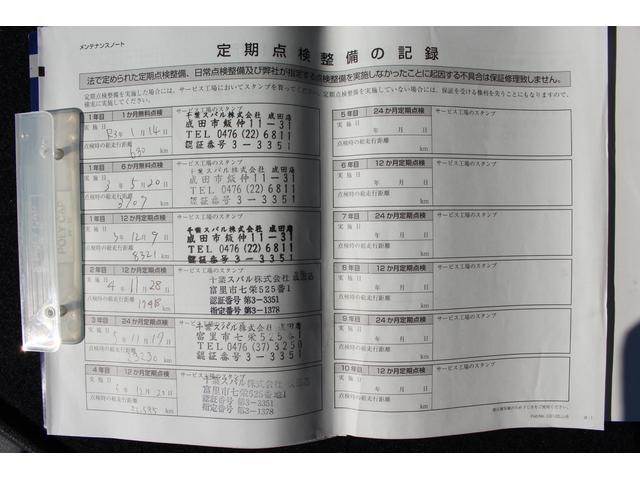 メンテナンスノート
定期点検整備の記録
法で定められた定期点検整備、日常点検整備及び弊社が指定する点検整備を実施しなかったことに起因する不具合は保証修理致しません。
定期点検整備を実施した場合には、サービス工場においてスタンプを貰ってください。定期点検整備を実施していない場合には、保証を受ける権利を失うこともなりますので、
確実に実施してください。
1年目 1か月無料点検 サービス工場のスタンプ
実施日 R3年 1月14日
点検時の総走行距離
630 km
千葉スバル株式会社 成田店
成田市飯仲11-31
TEL 0476 (22) 6811
認証番号 3-3351
1年目 6か月無料点検 サービス工場のスタンプ
実施日 3年 5月20日
点検時の総走行距離
km
千葉スバル株式会社 成田店
成田市飯仲11-31
TEL 0476 (22) 6811
認証番号 3-3351
1年目 12か月定期点検 サービス工場のスタンプ
実施日 3年 12月 9日
点検時の総走行距離
8,321 km
千葉スバル株式会社 成田店
成田市飯仲11-31
TEL 0476 (22) 6811
認証番号 3-3351
2年目 12か月定期点検 サービス工場のスタンプ
実施日 4年 11月28日
点検時の総走行距離
km
千葉スバル株式会社 成田店
富里市七栄525番1
認証番号 第3-3351
指定番号 第3-1378
3年目 24か月定期点検 サービス工場のスタンプ
実施日 5年 11月19日
点検時の総走行距離
km
千葉スバル株式会社 成田店
富里市七栄525番
TEL 0476 (37) 3250
認証番号 3-3351
4年目 12か月定期点検 サービス工場のスタンプ
実施日 6年 12月
点検時の総走行距離
km
千葉スバル株式会社
富里市七栄525番地1
認証番号 第3-3351
指定番号 第3-1378
5年目 24か月定期点検 サービス工場のスタンプ
実施日 年 月 日
点検時の総走行距離
km
6年目 12か月定期点検 サービス工場のスタンプ
実施日 年 月 日
点検時の総走行距離
km
7年目 24か月定期点検 サービス工場のスタンプ
実施日 年 月 日
点検時の総走行距離
km
8年目 12か月定期点検 サービス工場のスタンプ
実施日 年 月 日
点検時の総走行距離
km
9年目 24か月定期点検 サービス工場のスタンプ
実施日 年 月 日
点検時の総走行距離
km
10年目 12か月定期点検 サービス工場のスタンプ
実施日 年 月 日
点検時の総走行距離
km
POLY CAP